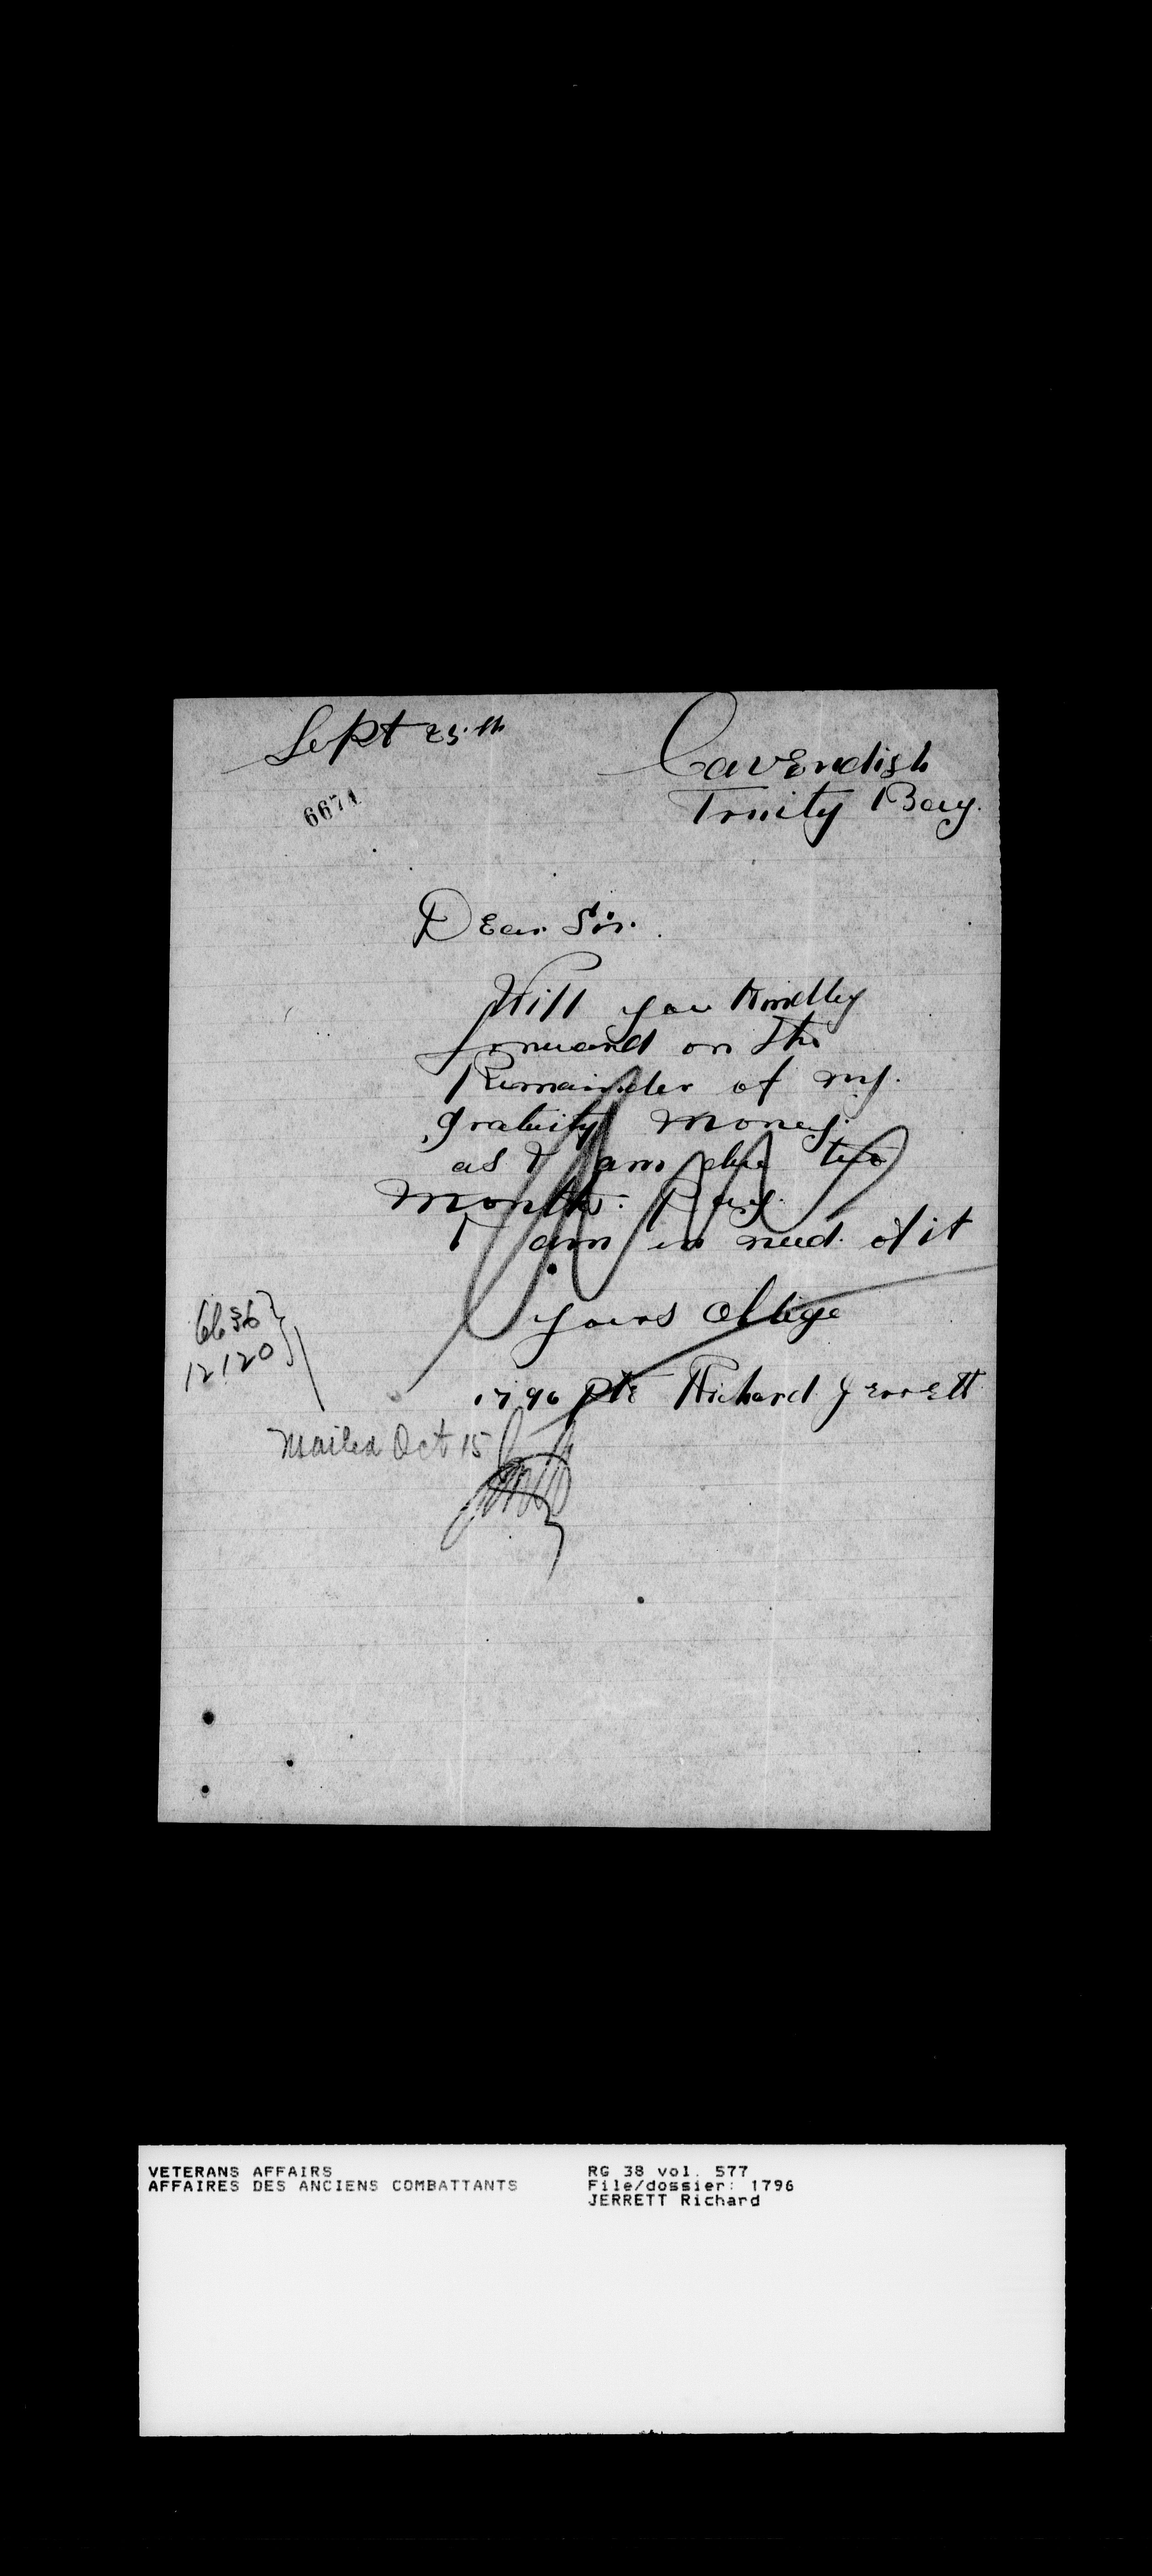 Sept 25th
Cavendish
Trinity Bay.
6671
Dear Sir.
Will you Kindly
forward on the
Remainder of my.
gratuity money.
as I am due two
months. Pay.
I am in need. of it
yours Oblige
1796 Pte Richard Jerrett
6636
12120
Mailed Oct 15
VETERANS AFFAIRS
AFFAIRES DES ANCIENS COMBATTANTS
RG 38 vol. 577
File/dossier: 1796
JERRETT Richard